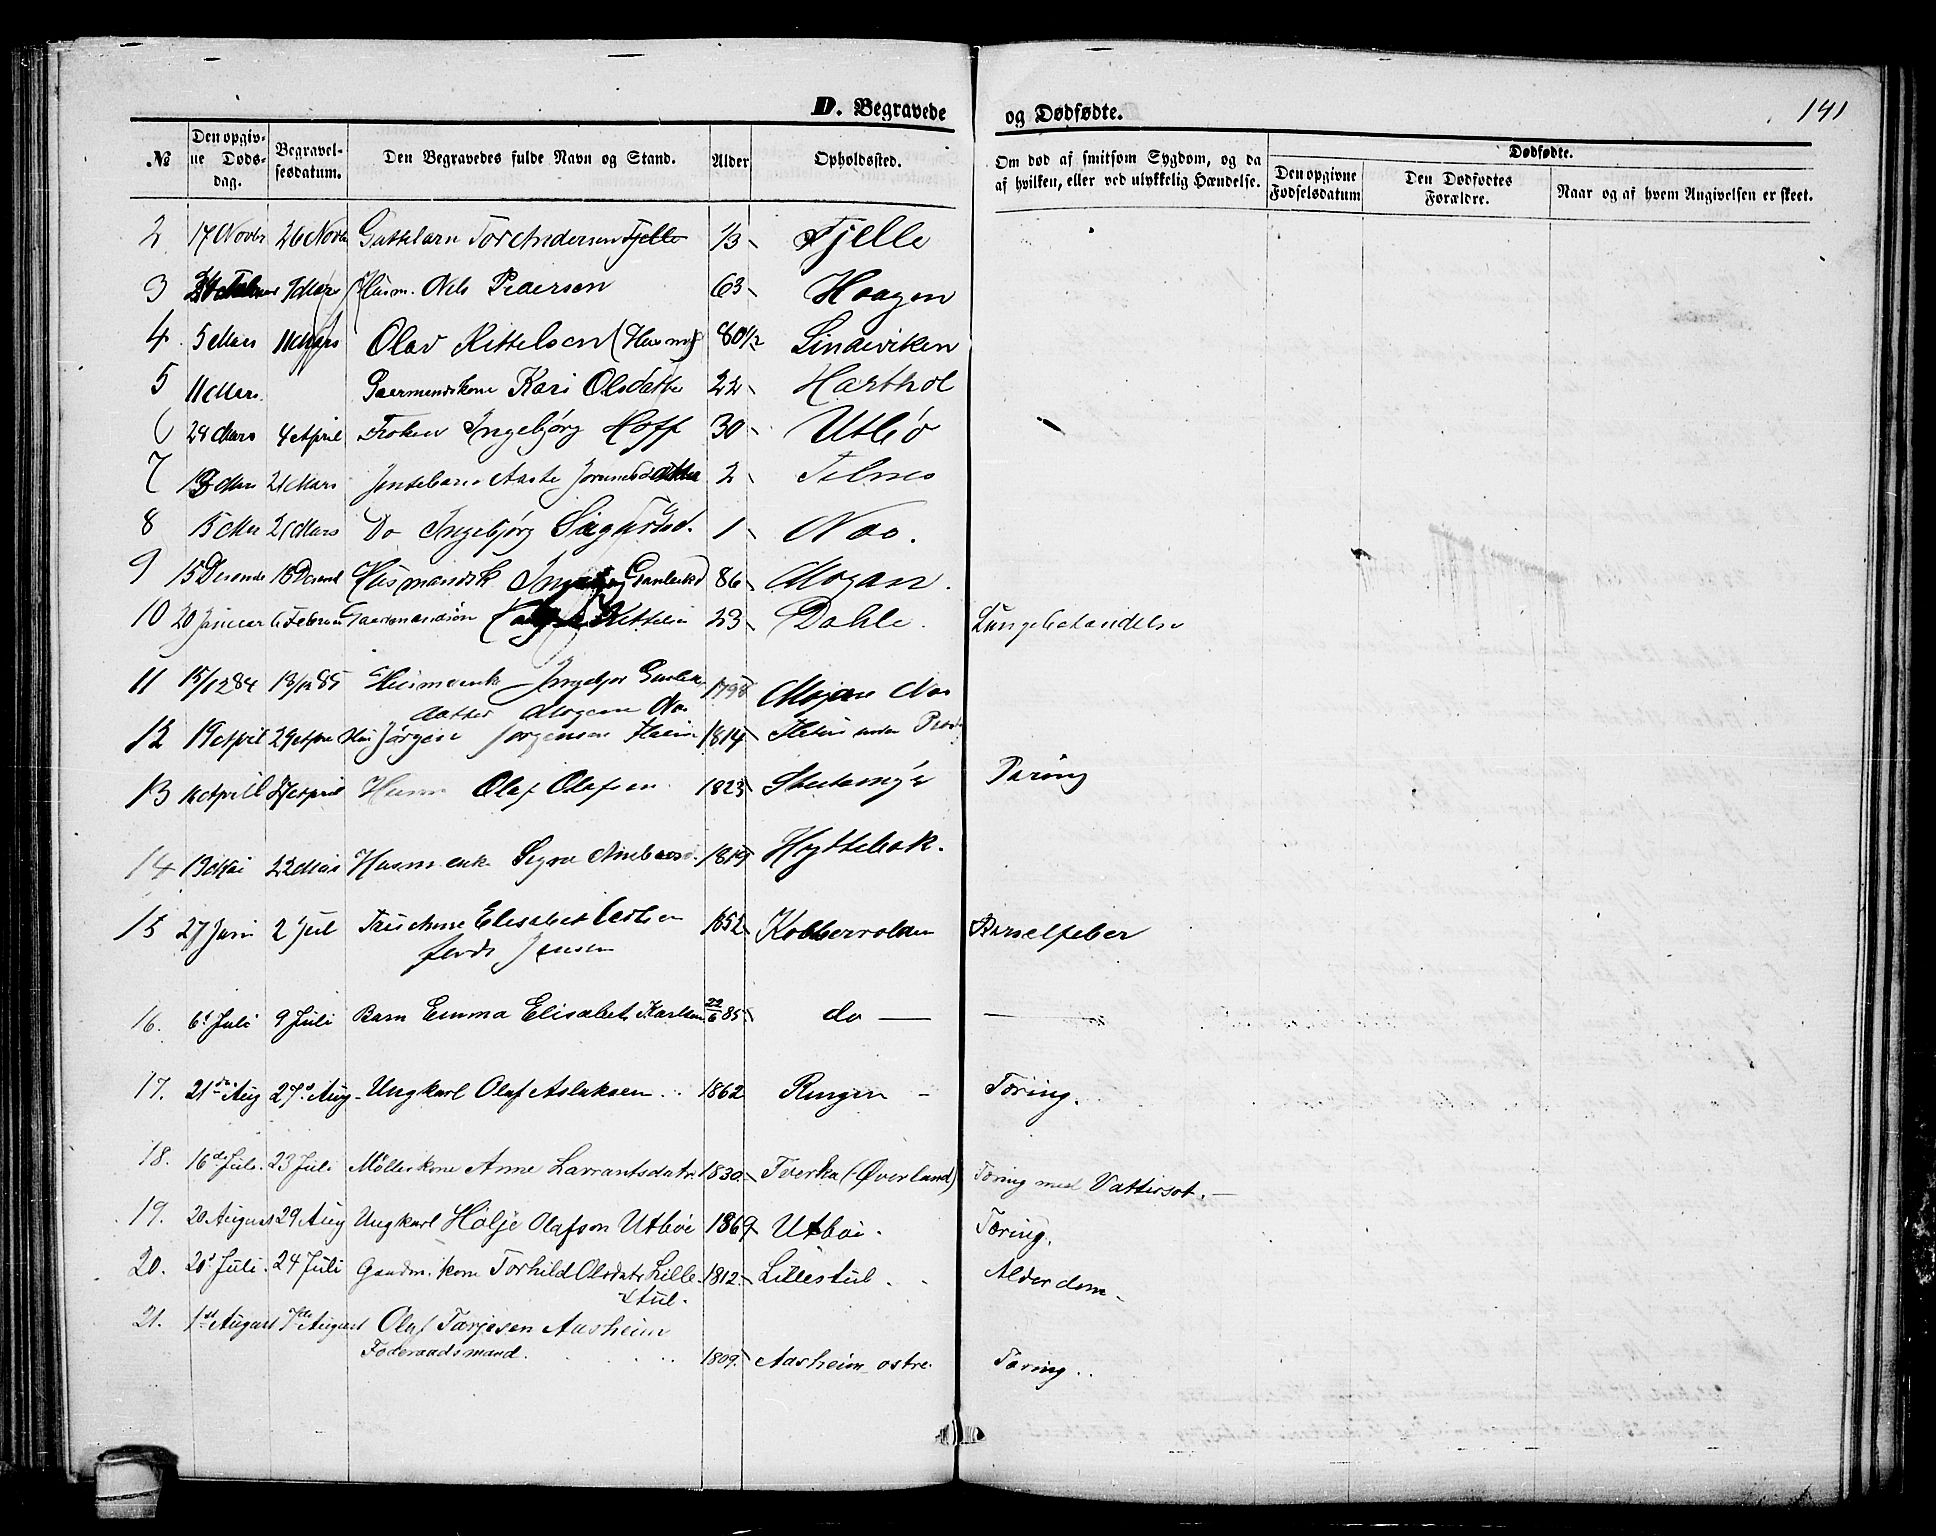 D. Begravede og Dødfødte. 141
№ Den opgivne Døds-dag. Begravel-sesdatum. Den Begravedes fulde Navn og Stand. Alder Opholdssted. Om død af smitsom Sygdom, og da af hvilken, eller ved ulykkelig Hændelse. Dødfødte.
Den opgivne Fødselsdatum Den Dødfødtes Forældre. Naar og af hvem Angivelsen er skeet.
2 17 Novbr 26 Novb Tor Andersen Fjelle 1/3 Fjelle
3 1 Mars Husm. Nils Pedersen 63 Haagen
4 5 Mars 11 Mars Olav Kittelsen (Husm) 80 1/2 Lindeviken
5 11 Mars Gaarmandskone Kari Olsdatte 22 Harthol
6 28 Mars 4 April Frøken Ingebjørg Hoff 30 Utbö
7 13 Mars 21 Mars Pikebarn Aaste 2
8 15 Mar 21 Mars Do Ingebjørg 1 Nao.
9 15 Desembe 18 Husmandsk 86 Mogan.
10 20 Januar 6 Februar Gaarmandsøn Kittelse 23 Dahle. Lungebetændelse
11 15/12 84 13/1 85 Husmank Ingebjør 1798 Mogan Nao
datter Mogan Nao
12 19 April 29 Apri Hus Jørgen Jørgensen 1814 under
13 16 April 27 April Husm Olaf Olafsen 1823 Tæring
14 13 Mai 22 Mai Husmank Signe 1819 Hyttebak.
15 27 Juni 2 Jul Elisabet 1852 Kobbervolden Barselfeber
født Jensen
16. 6t Juli 9 Juli Barn Emma Elisabet Karlsen 22/6 85 do —
17. 21de Aug 27d Aug Ungkarl Olaf Aslaksen 1862 Ringen – Tæring.
18. 16de Juli. 23 Juli Møllerkone Anne Lavrantsdatr 1830. Tverka (Øverland) Tæring med Vattersot. —
19. 20 August 29 Aug Ungkarl Hølje Olafson Utbøi 1869 Utbøi. Tæring.
20. 20d Juli. 24 Juli Gaardm. kone Torhild Olsdatr Lille- 1812. Lillestul. Alderdom –
stul.
21. 1st August 7de August Olaf Tarjesen Aasheim
Føderaadsmand. 1809. Aasheim østre. Tæring..